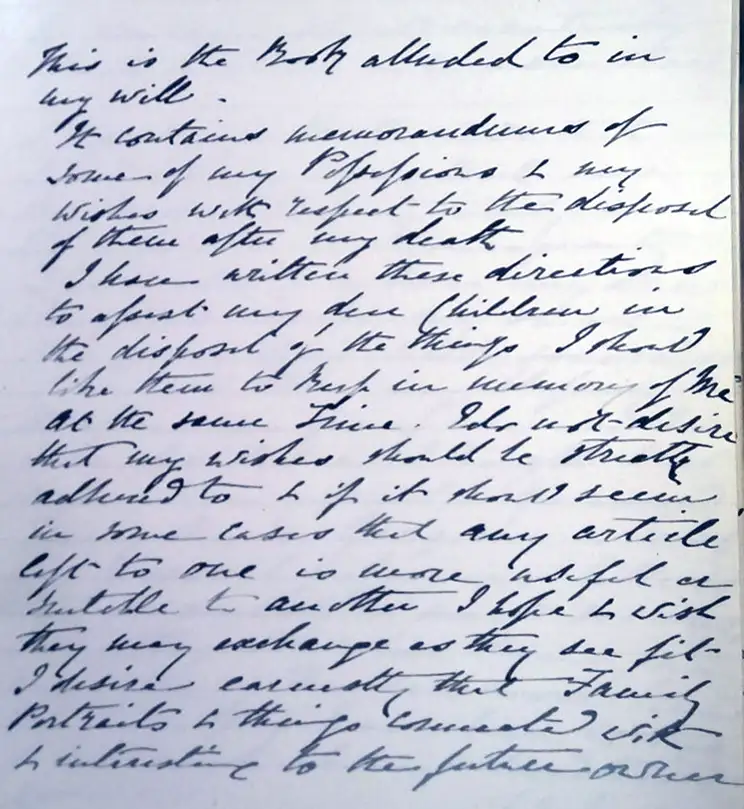 This is the Book alluded to in
my will.
It contains memorandums of
some of my Possessions & my
wishes with respect to the disposal
of them after my death
I have written these directions
to assist my dear Children in
the disposal of the things I should
like them to keep in memory of Me
at the same Time. I do not desire
that my wishes should be strictly
adhered to & if it should seem
in some cases that any article
left to one is more useful or
suitable to another I hope & wish
they may exchange as they see fit
I desire earnestly that Family
Portraits & things connected with
& interesting to the future owner